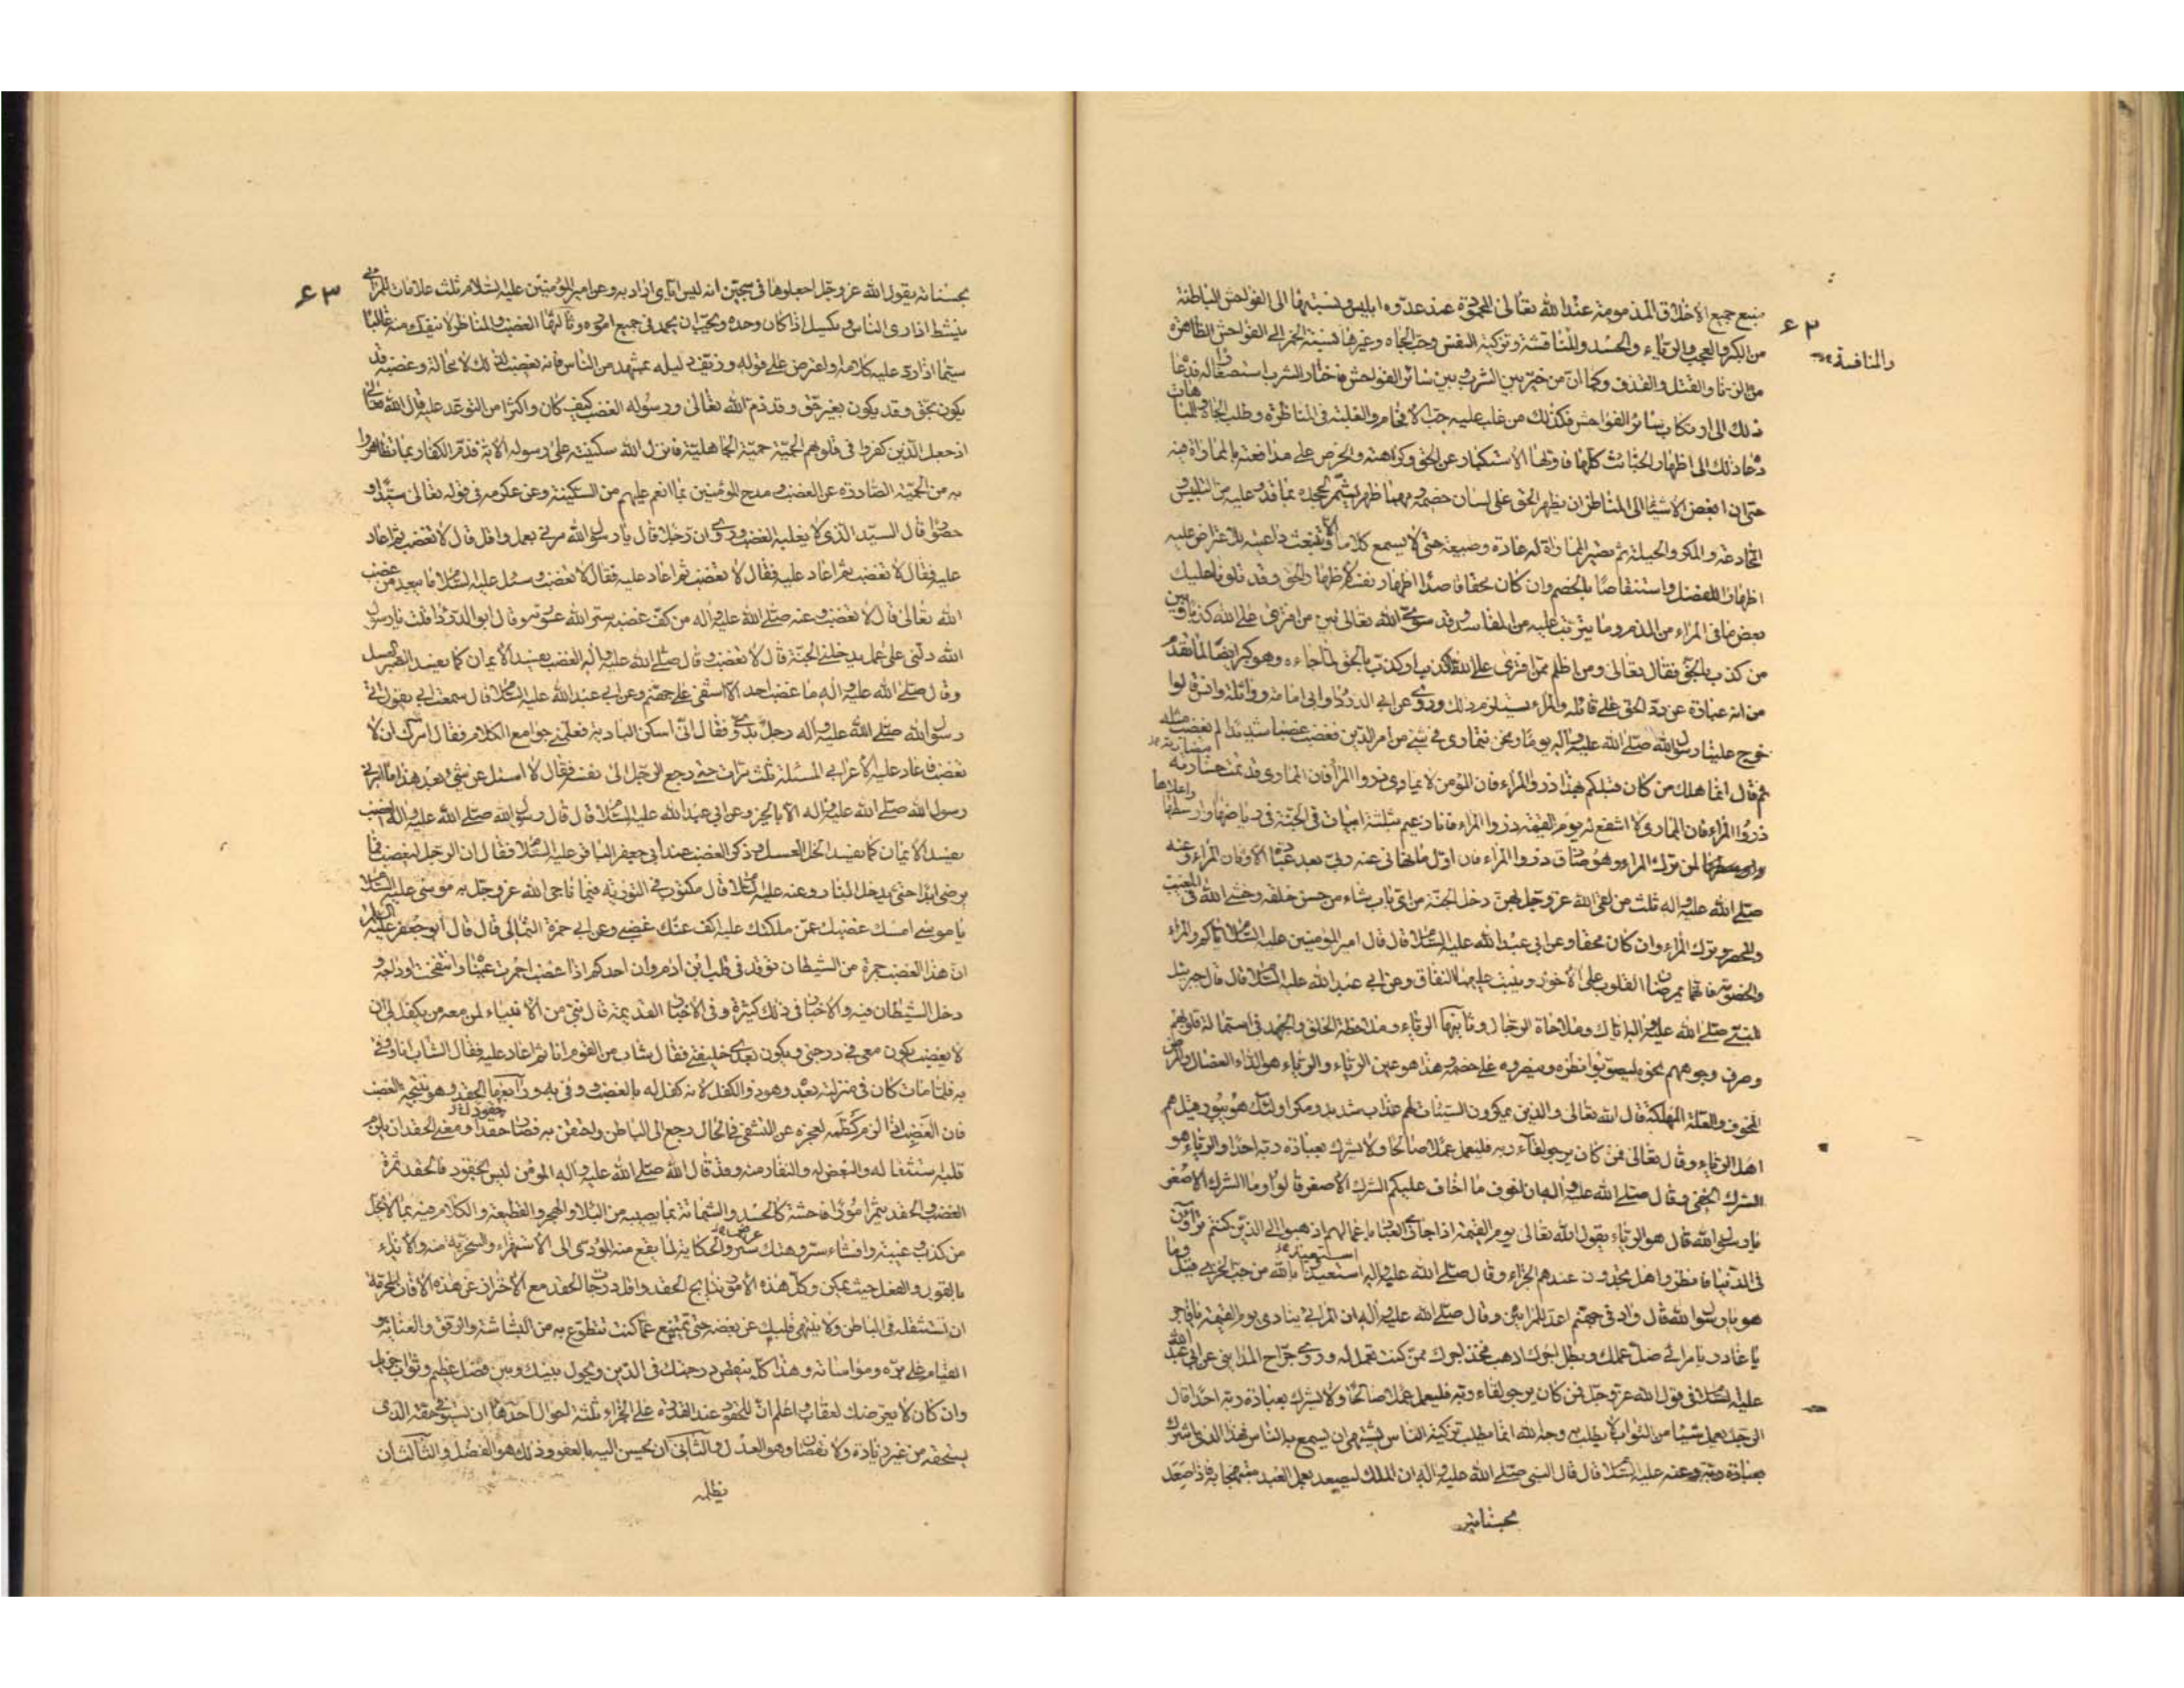 منبع جميع الاخلاق المذمومة عند الله تعالى المحمودة عند عدوه ابليس ونسبتها الى الفواحش الباطنة
۶۲
والمنافسة
من الكبر والعجب والرياء والحسد والمناقشة وتزكية النفس وحب الجاه وغيرها نسبة الخمر الى الفواحش الظاهرة
من الزنا والقتل والقذف وكما ان من خير بين الشرب وبين سائر الفواحش فاختار الشرب استصغارا له فدعاه
ذلك الى ارتكاب سائر الفواحش فكذلك من غلب عليه حب الافحام والغلبة فى المناظرة وطلب الجاه والمباهات
دعاه ذلك الى اظهار الخبائث كلها فاولها الاستكبار عن الحق وكراهته والحرص على مدافعته بالمماراة فيه
حتى ان ابغض الاشياء الى المناظر ان يظهر الحق على لسان خصمه ومهما ظهر يشمر لجحده بما قدر عليه من التلبيس و
المخادعة والمكر والحيلة ثم تصير المماراة له عادة وطبيعة حتى لا يسمع كلاما الا وتنبعث داعيته للاعتراض عليه
اظهارا للفضل واستنقاصا بالخصم وان كان محقا قاصدا اظهار نفسه لا اظهار الحق وقد تلونا عليك
بعض ما فى المراء من الذم وما يترتب عليه من المفاسد وقد سوى الله تعالى بين من افترى على الله كذبا وبين
من كذب بالحق فقال تعالى ومن اظلم ممن افترى على الله كذبا او كذب بالحق لما جاءه وهو كبر ايضا لما تقدم
من انه عبارة عن رد الحق على قائله والمراء يستلزم ذلك وروى عن ابى الدرداء وابى امامة وواثلة وانس قالوا
خرج علينا رسول الله صلى الله عليه واله يوما ونحن نتمارى فى شئ من امر الدين فغضب غضبا شديدا لم يغضب مثله
ثم قال انما هلك من كان قبلكم بهذا ذروا المراء فان المؤمن لا يمارى ذروا المراء فان الممارى قد تمت خسارته
ذروا المراء فان الممارى لا اشفع له يوم القيمة ذروا المراء فانا زعيم بثلثة ابيات فى الجنة فى رياضها واوسطها واعلاها
لمن ترك المراء وهو صادق ذروا المراء فان اول ما نهانى عنه ربى بعد عبادة الاوثان المراء وعنه
صلى الله عليه واله ثلث من لقى الله عز وجل بهن دخل الجنة من اى باب شاء من حسن خلقه وخشى الله فى المغيب
والمحضر وترك المراء وان كان محقا وعن ابى عبد الله عليه السلام قال قال امير المؤمنين عليه السلام اياكم والمراء
والخصومة فانهما يمرضان القلوب على الاخوان وينبت عليهما النفاق وعن ابى عبد الله عليه السلام قال قال جبرئيل
للنبى صلى الله عليه واله اياك وملاحاة الرجال وثانيها الرياء وملاحظة الخلق والجهد فى استمالة قلوبهم
وصرف وجوههم نحوه ليصوبوا نظره وينصروه على خصمه وهذا هو عين الرياء والرياء هو الداء العضال والمرض
المخوف والعلة المهلكة قال الله تعالى والذين يمكرون السيئات لهم عذاب شديد ومكر اولئك هو يبور قيل هم
اهل الرياء وقال تعالى فمن كان يرجو لقاء ربه فليعمل عملا صالحا ولا يشرك بعبادة ربه احدا والرياء هو
الشرك الخفى وقال صلى الله عليه واله ان اخوف ما اخاف عليكم الشرك الاصغر قالوا وما الشرك الاصغر
يا رسول الله قال هو الرياء يقول الله تعالى يوم القيمة اذا جازى العباد باعمالهم اذهبوا الى الذين كنتم تراؤن
فى الدنيا فانظروا هل تجدون عندهم الجزاء وقال صلى الله عليه واله استعيذوا بالله من جب الخزى قيل وما
هو يا رسول الله قال واد فى جهنم اعد للمرائين وقال صلى الله عليه واله ان المرائى ينادى يوم القيمة يا فاجر
يا غادر يا مرائى ضل عملك وبطل اجرك اذهب فخذ اجرك ممن كنت تعمل له وروى جراح المداينى عن ابى عبد الله
عليه السلام فى قول الله عز وجل فمن كان يرجو لقاء ربه فليعمل عملا صالحا ولا يشرك بعبادة ربه احدا قال
الرجل يعمل شيئا من الثواب لا يطلب به وجه الله انما يطلب تزكية الناس يشتهى ان يسمع به الناس فهذا الذى اشرك
بعبادة ربه وعنه عليه السلام قال قال النبى صلى الله عليه واله ان الملك ليصعد بعمل العبد مبتهجا به فاذا صعد
بحسناته
۶۳
بحسناته يقول الله عز وجل اجعلوها فى سجين انه ليس اياى اراد به وعن امير المؤمنين عليه السلام ثلث علامات للمرائى
ينشط اذا رى الناس ويكسل اذا كان وحده ويحب ان يحمد فى جميع اموره وثالثها الغضب والمناظر لا ينفك منه غالبا
سيما اذا رد عليه كلامه او اعترض على قوله وزيف دليله بمشهد من الناس فانه يغضب لذلك لا محالة وغضبه قد
يكون بحق وقد يكون بغير حق وقد ذم الله تعالى ورسوله الغضب كيف كان واكثرا من التوعد عليه قال الله تعالى
اذ جعل الذين كفروا فى قلوبهم الحمية حمية الجاهلية فانزل الله سكينته على رسوله الاية فذم الكفار بما تظاهروا
به من الحمية الصادرة عن الغضب ومدح المؤمنين بما انعم عليهم من السكينة وعن عكرمه فى قوله تعالى سيدا و
حصورا قال السيد الذى لا يغلبه الغضب وروى ان رجلا قال يا رسول الله مرنى بعمل واقل قال لا تغضب ثم اعاد
عليه فقال لا تغضب ثم اعاد عليه فقال لا تغضب ثم اعاد عليه فقال لا تغضب وسئل عليه السلام ما يبعد من غضب
الله تعالى قال لا تغضب وعنه صلى الله عليه واله من كف غضبه ستر الله عورته وقال ابو الدرداء قلت يا رسول
الله دلنى على عمل يدخلنى الجنة قال لا تغضب وقال صلى الله عليه واله الغضب يفسد الايمان كما يفسد الصبر العسل
وقال صلى الله عليه واله ما غضب احد الا اشفى على جهنم وعن ابى عبد الله عليه السلام قال سمعت ابى يقول اتى
رسول الله صلى الله عليه واله رجل بدوى فقال انى اسكن البادية فعلمنى جوامع الكلام فقال امرك ان لا
تغضب فاعاد عليه الاعرابى المسئلة ثلث مرات حتى رجع الرجل الى نفسه فقال لا اسئل عن شئ بعد هذا ما امرنى
رسول الله صلى الله عليه واله الا بالخير وعن ابى عبد الله عليه السلام قال قال رسول الله صلى الله عليه واله الغضب
يفسد الايمان كما يفسد الخل العسل وذكر الغضب عند ابى جعفر الباقر عليه السلام فقال ان الرجل ليغضب فما
يرضى ابدا حتى يدخل النار وعنه عليه السلام قال مكتوب فى التورية فيما ناجى الله عز وجل به موسى عليه السلام
يا موسى امسك غضبك عمن ملكتك عليه اكف عنك غضبى وعن ابى حمزة الثمالى قال قال ابو جعفر عليه السلام
ان هذا الغضب جمرة من الشيطان توقد فى قلب ابن ادم وان احدكم اذا غضب احمرت عيناه وانتفخت اوداجه و
دخل الشيطان فيه والاخبار فى ذلك كثيرة وفى الاخبار القديمة قال نبى من الانبياء لمن معه من يكفل لى ان
لا يغضب يكون معى فى درجتى ويكون بعدى خليفتى فقال شاب من القوم انا ثم اعاد عليه فقال الشاب انا ووفى
به فلما مات كان فى منزلته بعده وهو ذو الكفل لانه كفل له بالغضب ووفى به ورابعها الحقد وهو نتيجة الغضب
فان الغضب اذا لزم كظمه لعجزه عن التشفى فى الحال رجع الى الباطن واحتقن به فصار حقدا ومعنى الحقد ان يلزم
قلبه استثقاله والبغض له والنفار منه وقد قال الله صلى الله عليه واله المؤمن ليس بحقود فالحقد ثمرة
الغضب والحقد يثمر امورا فاحشة كالحسد والشماتة بما يصيبه من البلاء والهجر والقطيعة والكلام فيه بما لا يحل
من كذب وغيبة وافشاء سر وهتك ستر والحكاية لما يقع منه المؤدى الى الاستهزاء والسخرية منه والايذاء
بالقول والفعل حيث يمكن وكل هذه الامور نتايج الحقد واقل درجات الحقد مع الاحتراز عن هذه الافات المحرمة
ان تستثقله فى الباطن ولا ينتهى قلبك عن بغضه حتى تمتنع عما كنت تتطوع به من البشاشة والرفق والعناية و
القيام على بره ومواساته وهذا كله ينقص درجتك فى الدين ويحول بينك وبين فضل عظيم وثواب جزيل
وان كان لا يعرضك لعقاب واعلم ان للحقود عند القدرة على الجزاء ثلثة احوال احدها ان يستوفى حقه الذى
يستحقه من غير زيادة ولا نقصان وهو العدل والثانى ان يحسن اليه بالعفو وذلك هو الفضل والثالث ان
يظلمه